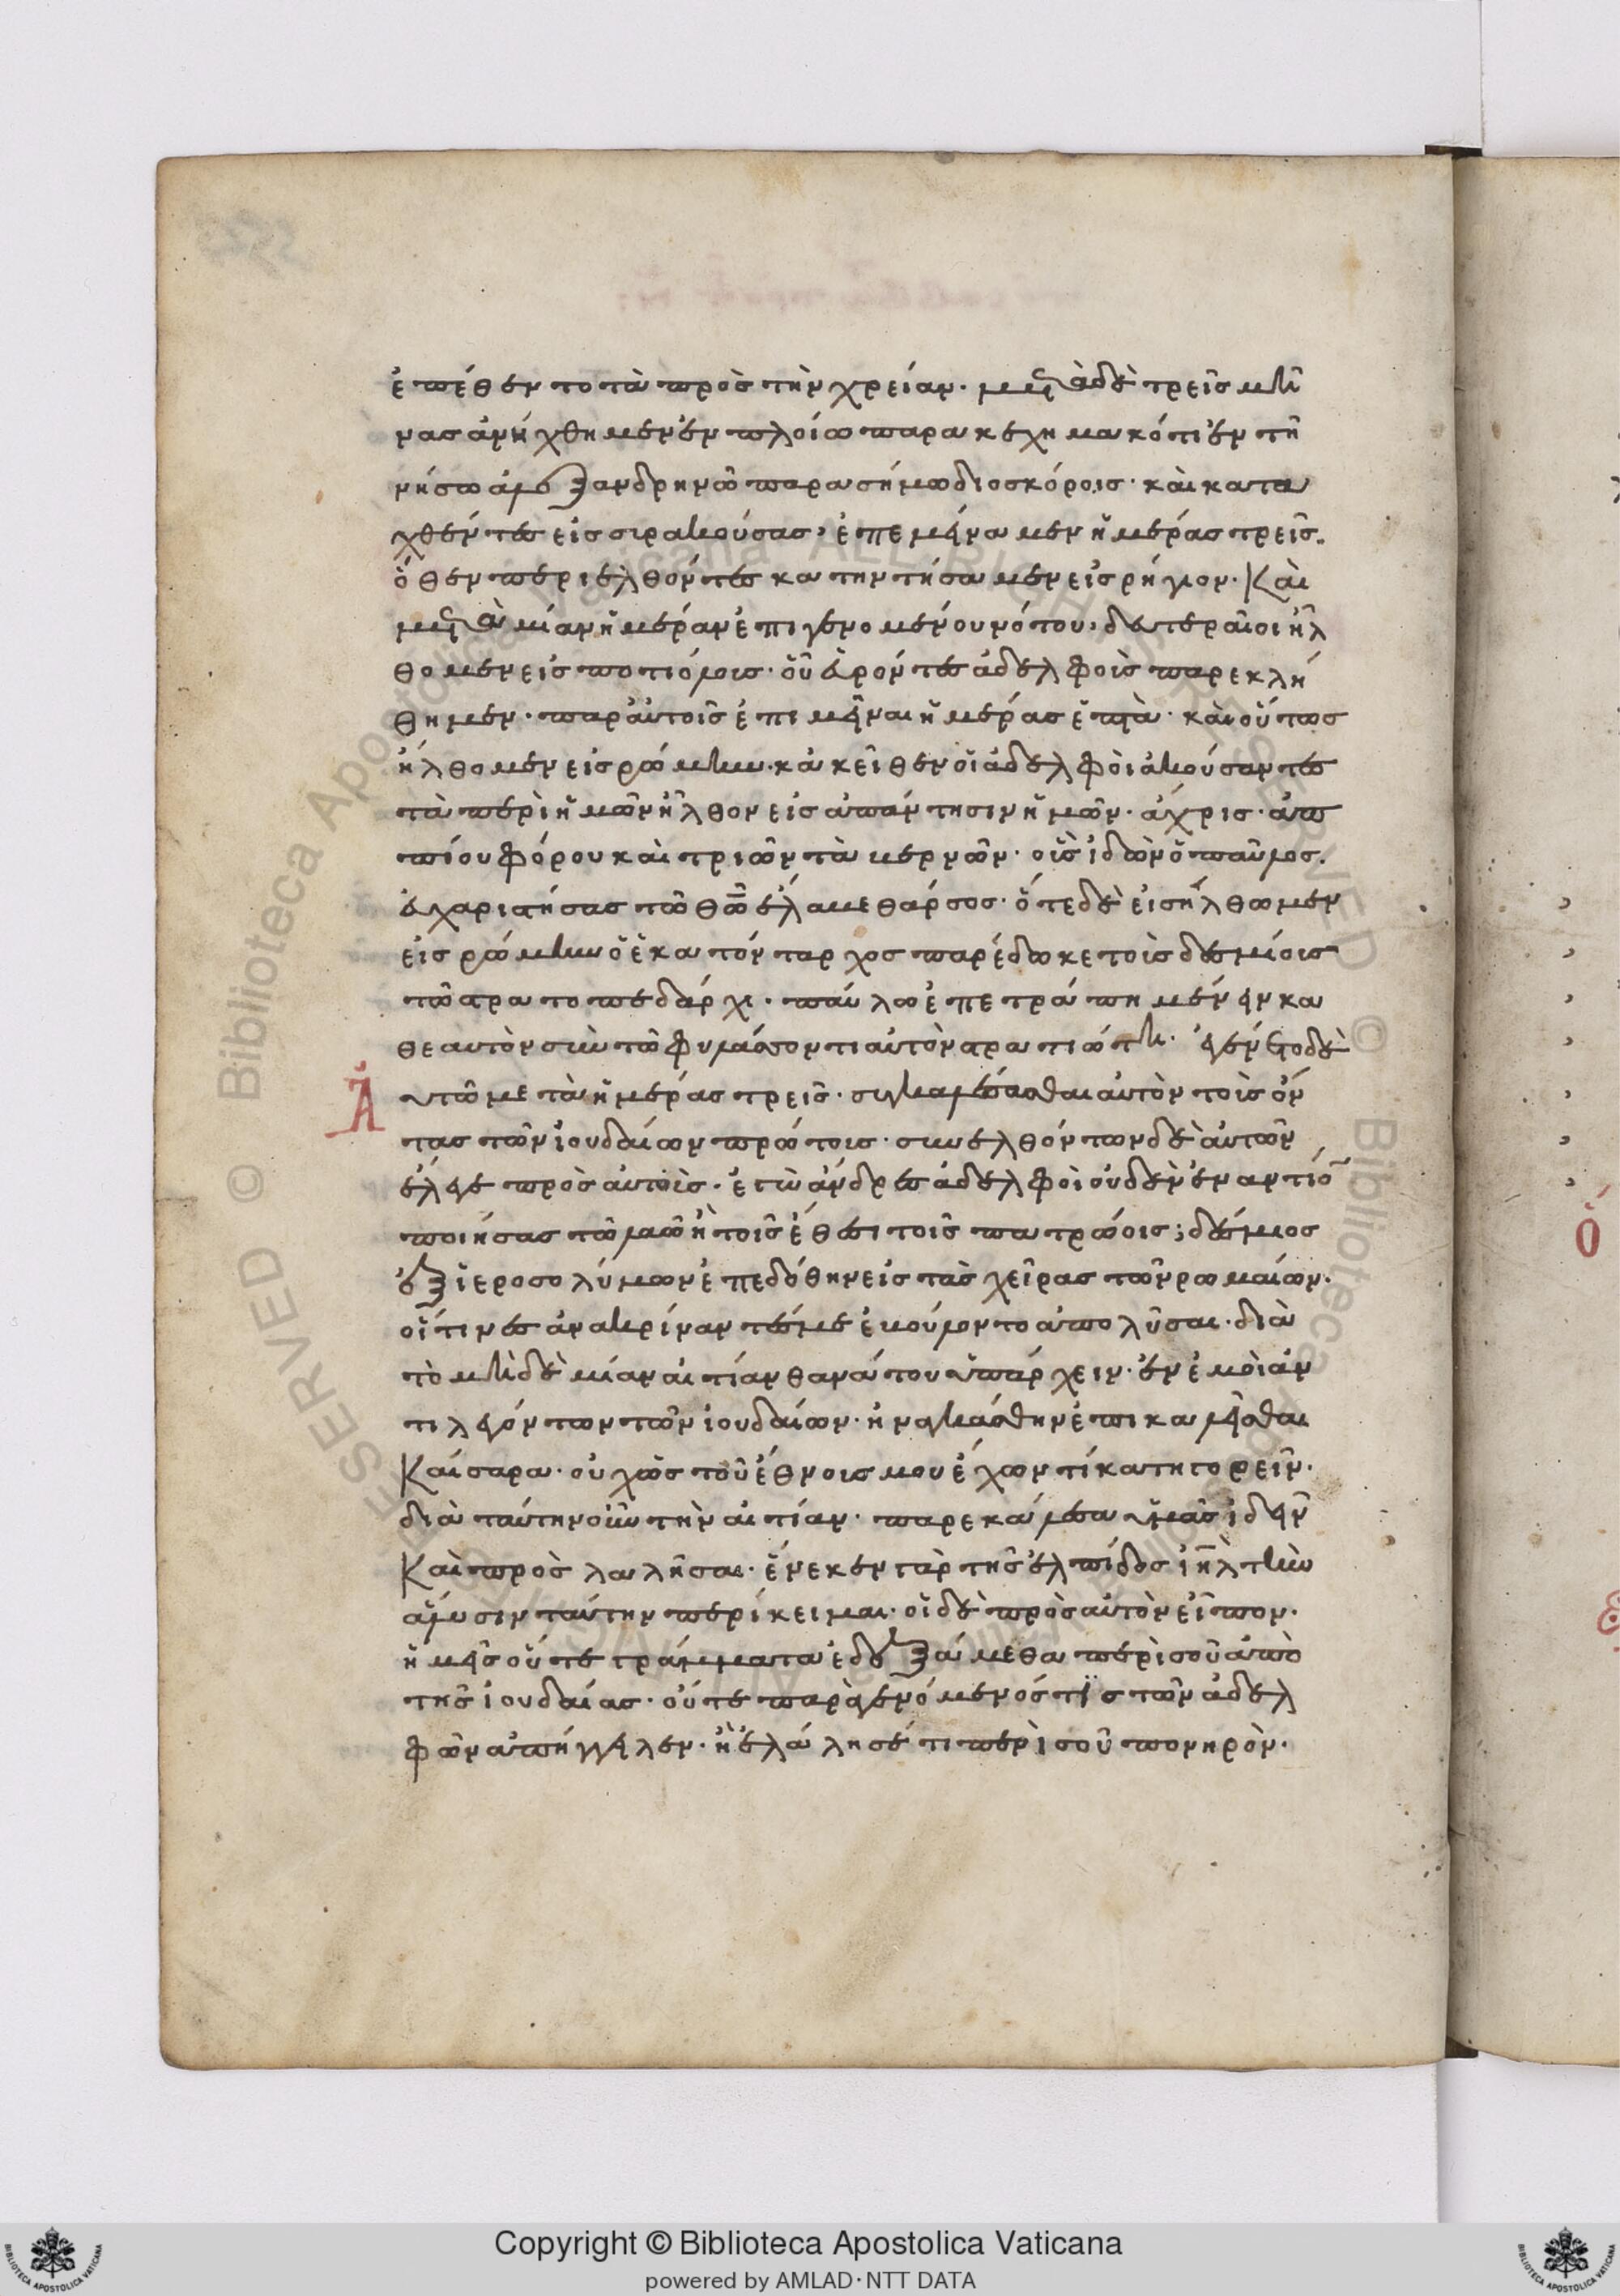 ἐπέθεντο τὰ πρὸς τὴν χρείαν· μετὰ δὲ τρεῖς μῆ
νας ἀνήχθημεν ἐν πλοίω παρακεχημακότι ἐν τῆ
νήσω ἀλεξανδρηνῶ παρασήμω διοσκόροις· καὶ κατα
χθέντες εἰς συρακούσας, ἐπεμείναμεν ἡμέρας τρεῖς.
ὅθεν περιελθόντες κατηντήσαμεν εἰς ρήγιον· Καὶ
μετὰ μίαν ἡμέραν ἐπιγενομένου νότου, δευτεραῖοι ἤλ
θομεν εἰς ποτιόλοις· οὗ εὑρόντες ἀδελφοὺς παρεκλή
θημεν· παρ' αὐτοῖς ἐπιμεῖναι ἡμέρας ἑπτὰ· καὶ οὕτως
ἤλθομεν εἰς ρώμην· κἀκεῖθεν οἱ ἀδελφοὶ ἀκούσαντες
τὰ περὶ ἡμῶν ἦλθον εἰς ἀπάντησιν ἡμῶν· ἄχρις· ἀπ
πίου φόρου καὶ τριῶν ταβερνῶν· οὓς ἰδὼν ὁ παῦλος.
εὐχαριστήσας τῶ θῶ ἔλαβε θάρσος· ὅτε δὲ εἰσήλθωμεν
εἰς ρώμην ὁ ἑκατόνταρχος παρέδωκε τοὺς δεσμίους
τῶ στρατοπεδάρχι· παύλω ἐπετράπη μένειν κα
θ' ἑαυτὸν σὺν τῶ φυλάσσοντι αὐτὸν στρατιώτη· ἐγένετο δὲ
αυτῶ μετὰ ἡμέρας τρεῖς· συγκαλέσασθαι αὐτὸν τοὺς ὄν
τας τῶν ἰουδαίων πρώτους· συνελθόντων δὲ αὐτῶν
ἔλεγε πρὸς αὐτοὺς· ἐγὼ ἄνδρες ἀδελφοὶ οὐδὲν ἐναντίον
ποιήσας τῶ λαῶ ἢ τοῖς ἔθεσι τοῖς πατρώοις; δέσμιος
ἐξ ἱεροσολύμων ἐπεδόθην εἰς τὰς χεῖρας τῶν ρωμαίων·
οἵτινες ἀνακρίναντές με ἐβούλοντο ἀπολῦσαι· διὰ
τὸ μὴ δὲ μίαν αἰτίαν θανάτου ὑπάρχειν· ἐν ἐμοὶ ἀν
τιλεγόντων τῶν ἰουδαίων· ἠναγκάσθην ἐπικαλεῖσθαι
Καίσαρα· οὐχ ὡς τοῦ ἔθνους μου ἔχων τί κατηγορεῖν·
διὰ ταύτην οὖν τὴν αἰτίαν· παρεκάλεσα ὑμᾶς ἰδεῖν
Καὶ προσλαλῆσαι· ἕνεκεν γὰρ τῆς ἐλπίδος ἰηλ τὴν
ἅλυσιν ταύτην περίκειμαι· οἱ δὲ πρὸς αὐτὸν εἶπον·
ἡμεῖς οὔτε γράμματα ἐδεξάμεθα περὶ σοῦ ἀπὸ
τῆς ἰουδαίας· οὔτε παραγενόμενός τις τῶν ἀδελ
φῶν ἀπήγγειλεν· ἢ ἐλάλησέ τι περὶ σοῦ πονηρὸν·
Copyright © Biblioteca Apostolica Vaticana
powered by AMLAD·NTT DATA